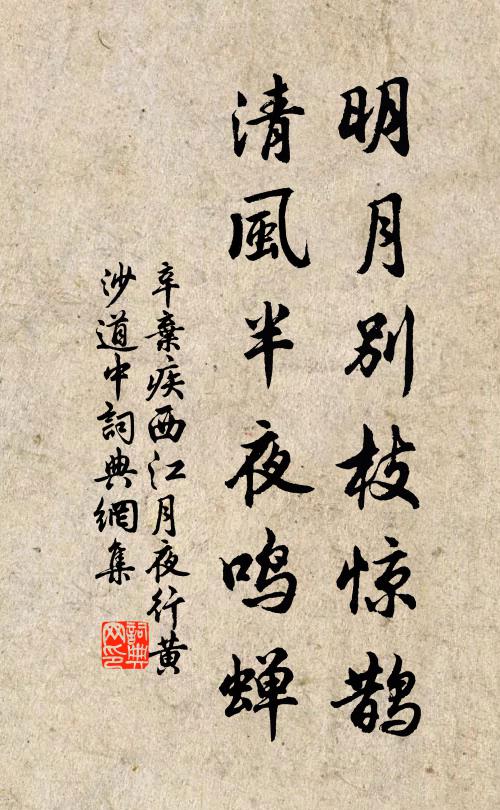 明月别枝惊鹊
清風半夜鸣蝉
辛棄疾西江月夜行黄
沙道中詞典網集
詞典
网印